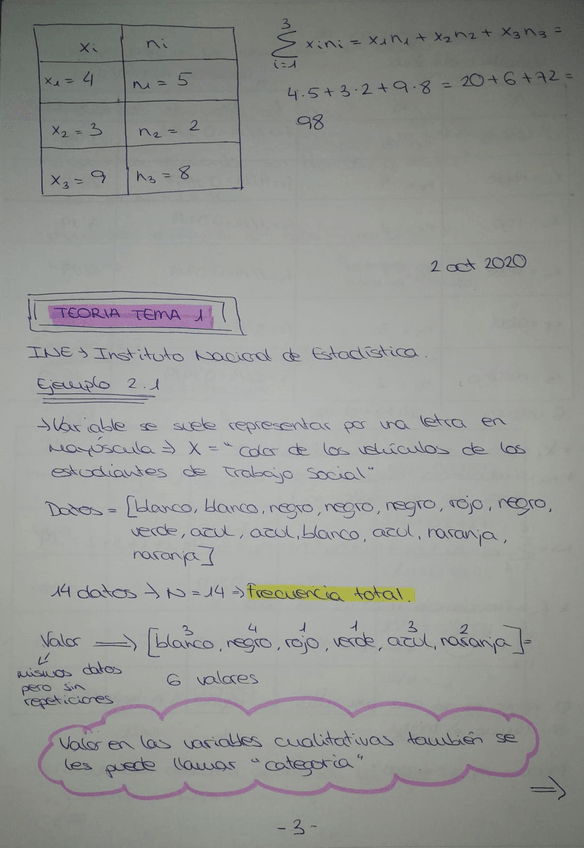 xi ni
x1 = 4 n1 = 5
x2 = 3 n2 = 2
x3 = 9 n3 = 8
3
∑ xini = x1n1 + x2n2 + x3n3 =
i=1
4·5+3·2+9·8 = 20+6+72 =
98
2 oct 2020
TEORIA TEMA 1
INE → Instituto Nacional de Estadística.
Ejemplo 2.1
→ Variable se suele representar por una letra en
mayúscula ⇒ X = "color de los vehículos de los
estudiantes de Trabajo Social"
Datos = [blanco, blanco, negro, negro, negro, rojo, negro,
verde, azul, azul, blanco, azul, naranja,
naranja]
14 datos → N = 14 → frecuencia total.
3 4 1 1 3 2
Valor ⟹ [blanco, negro, rojo, verde, azul, naranja] =
mismos datos
pero sin
repeticiones
6 valores
Valor en las variables cualitativas también se
les puede llamar "categoria"
⟹
- 3 -